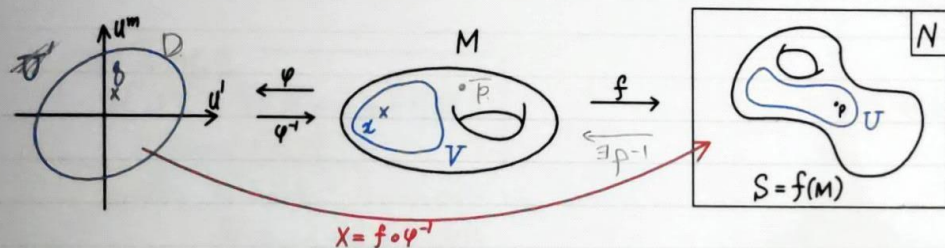 u^m
D
q
u^1
φ
φ^-1
M
x
V
p̄
f
N
p
U
S = f(M)
X = f∘φ^-1